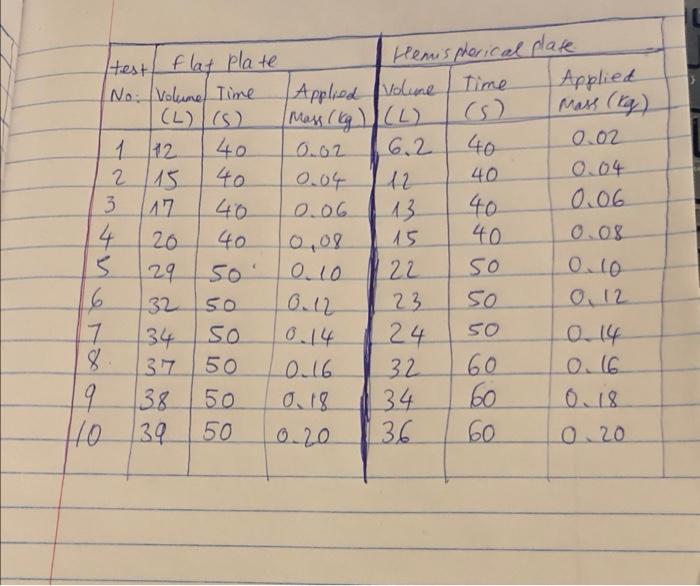 Flat Plate Hemispherical plate
test No: Volume (L) Time (S) Applied Mass (kg) Volume (L) Time (S) Applied Mass (kg)
1 12 40 0.02 6.2 40 0.02
2 15 40 0.04 12 40 0.04
3 17 40 0.06 13 40 0.06
4 20 40 0,08 15 40 0.08
5 29 50 0.10 22 50 0.10
6 32 50 0.12 23 50 0.12
7 34 50 0.14 24 50 0.14
8. 37 50 0.16 32 60 0.16
9 38 50 0.18 34 60 0.18
10 39 50 0.20 36 60 0.20